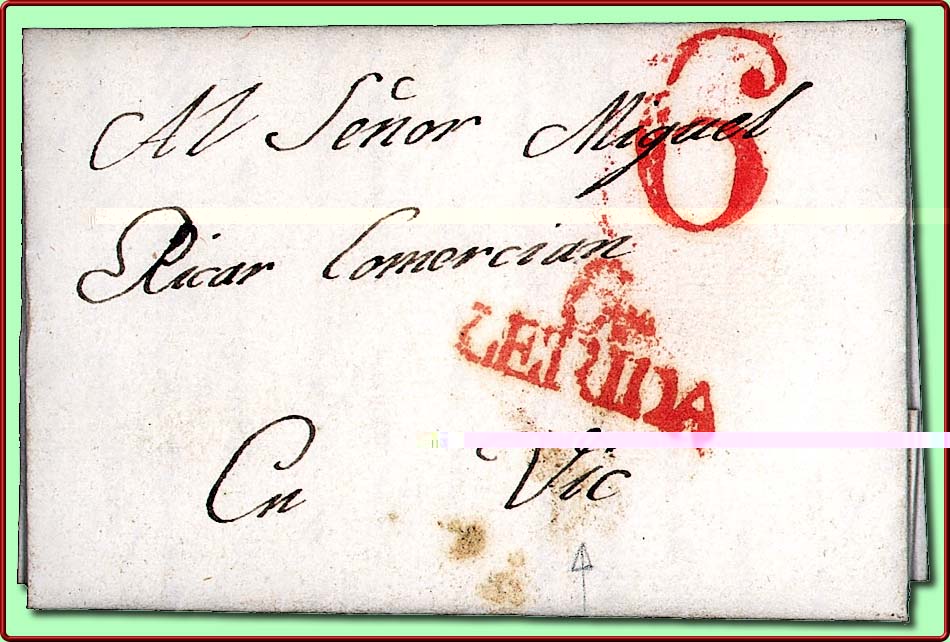 Al Señor Miguel
6
Ricar Comercian
Cn
LERIDA
En Vic